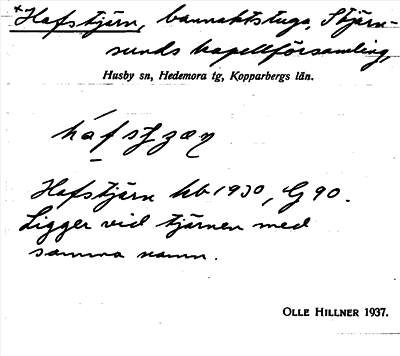 *Hafstjärn, bannaktstuga, Stjärn-
sunds kapellförsamling,
Husby sn, Hedemora tg, Kopparbergs län.
Hafstjärn kb 1930, G 90.
Ligger vid tjärnen med
samma namn.
OLLE HILLNER 1937.